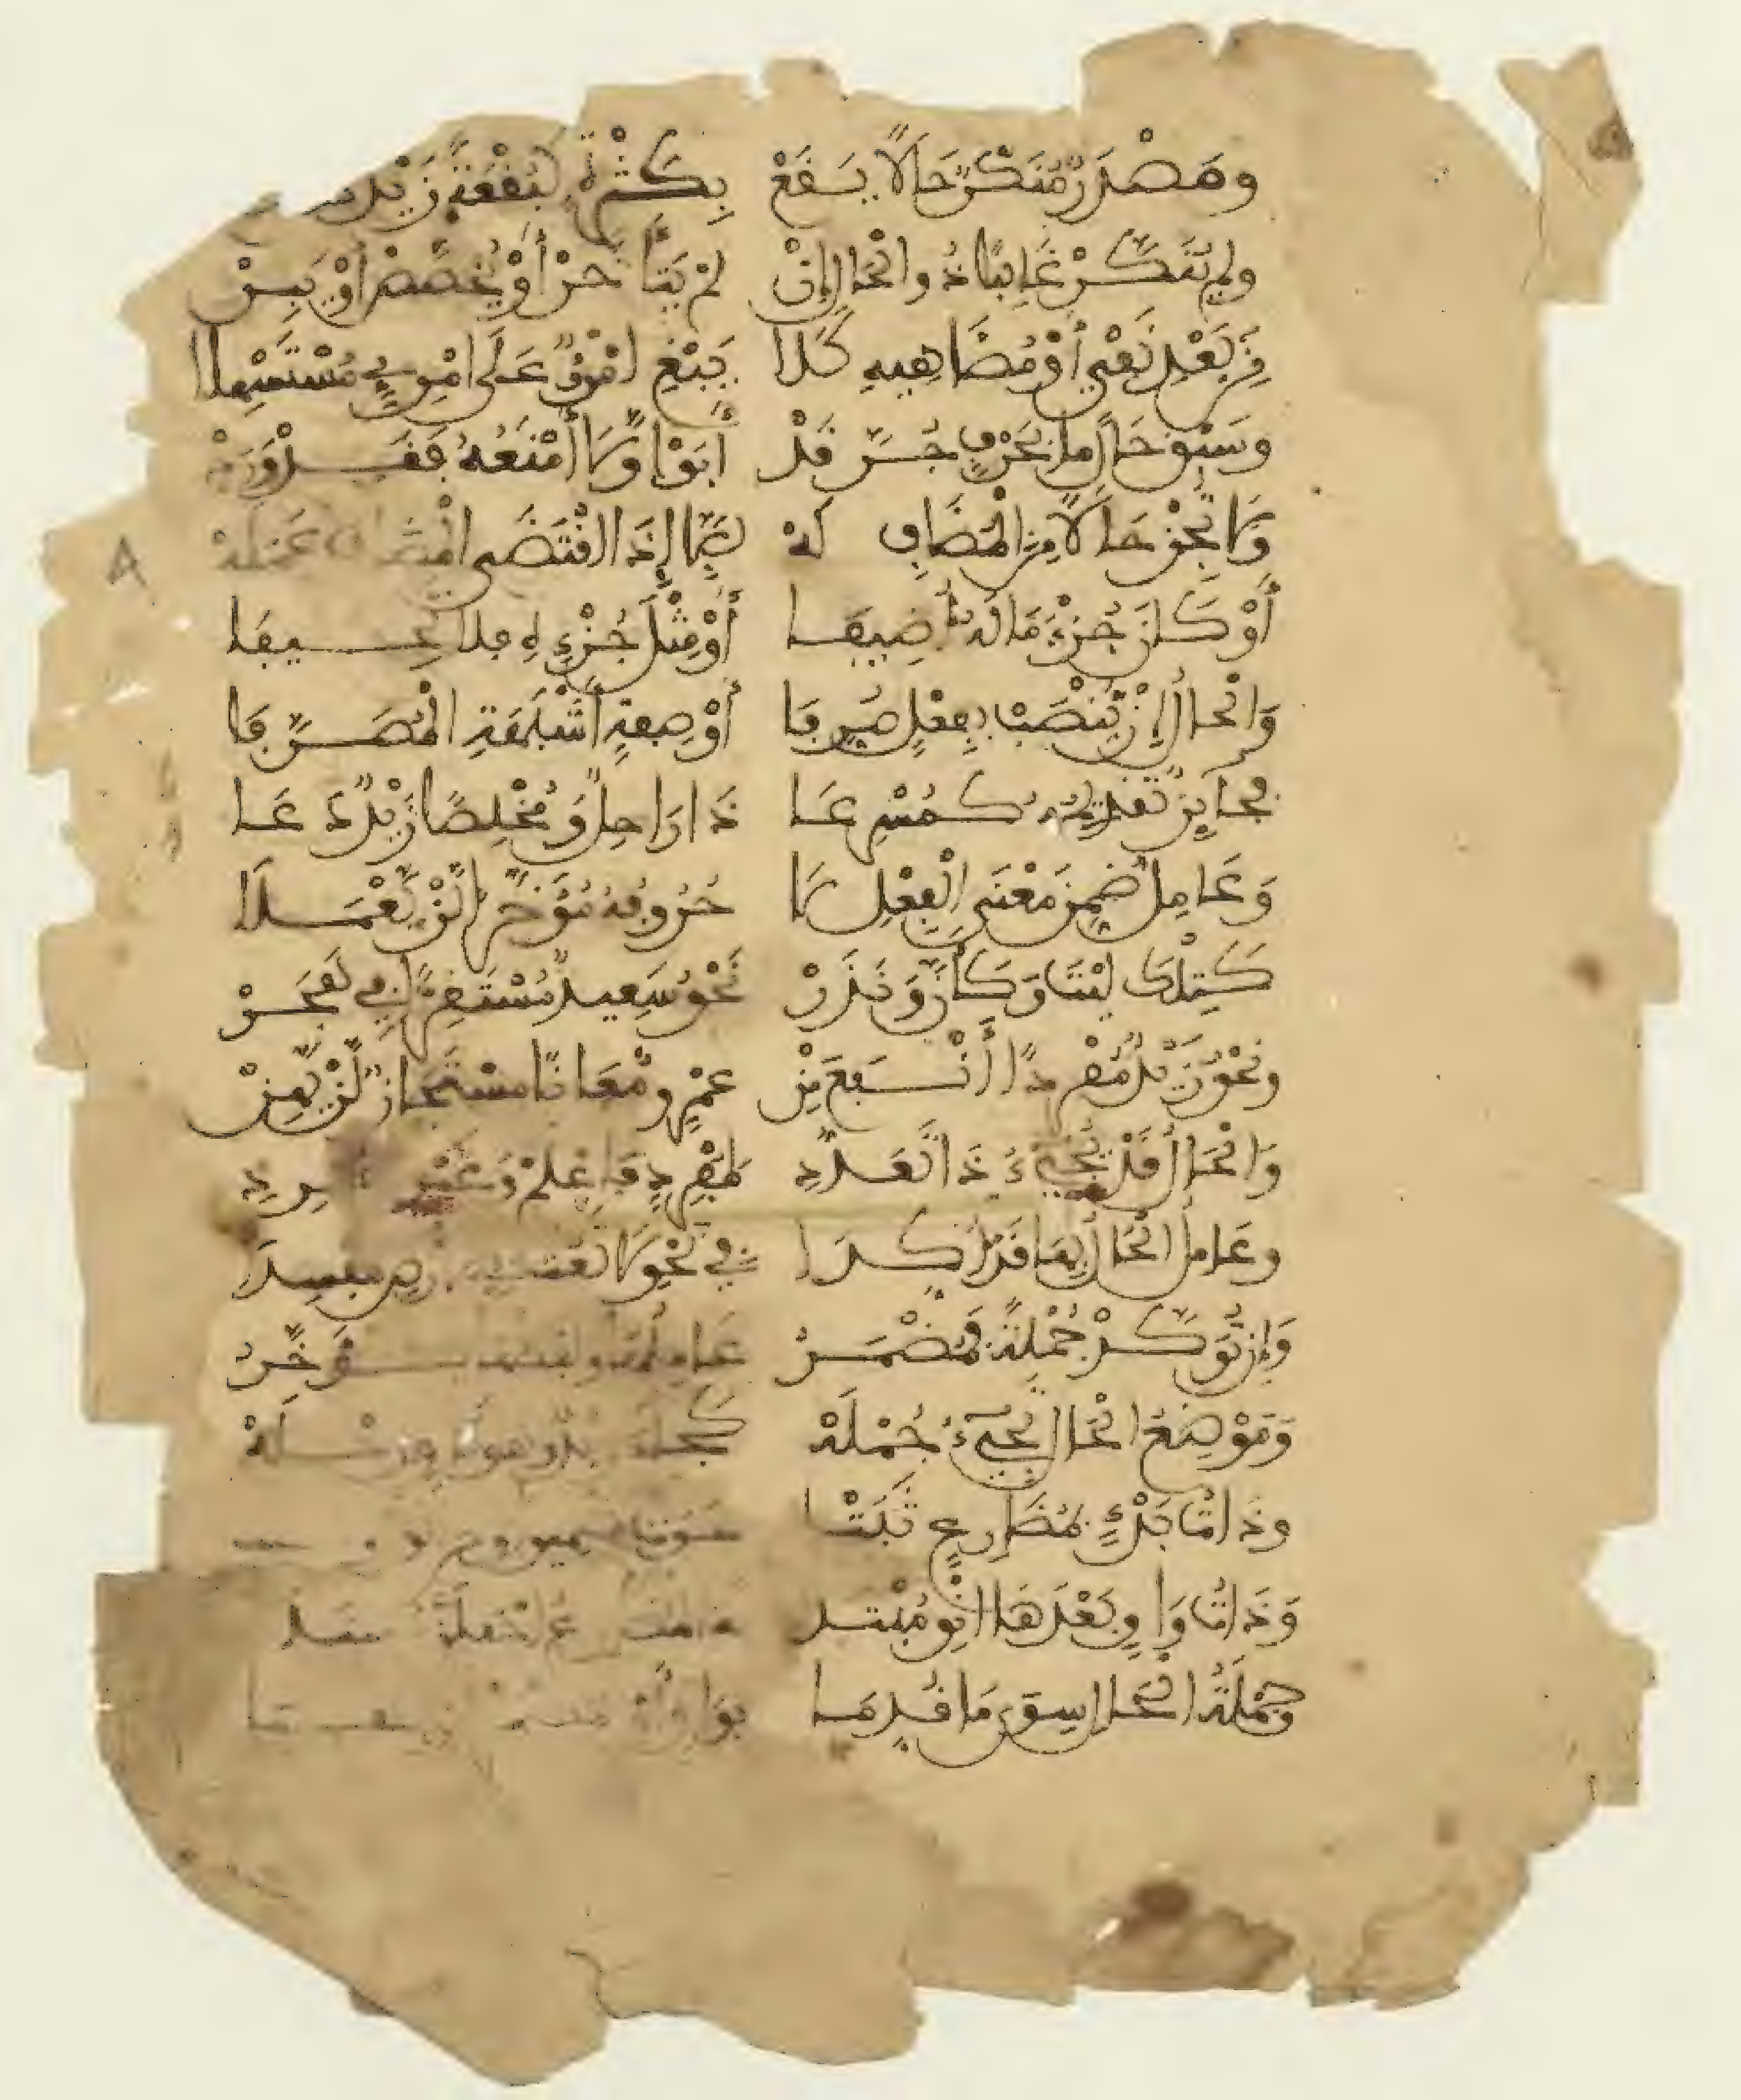 وَمَصْدَرٌ مُنَكَّرٌ حَالًا يَقَعْ بِكَثْرَةٍ كَبَغْتَةً زَيْدٌ
ولم يُنَكَّرْ غَالِبًا ذُو الْحَالِ إِنْ لَمْ يَتَأَخَّرْ أَوْ يُخَصَّصْ أَوْ يَبِنْ
مِنْ بَعْدِ نَفْيٍ أَوْ مُضَاهِيهِ كَلَا يَبْغِ امْرُؤٌ عَلَى امْرِئٍ مُسْتَسْهِلَا
وسَبْقَ حَالٍ مَا بِحَرْفٍ جُرَّ قَدْ أَبَوْا وَلَا أَمْنَعُهُ فَقَدْ وَرَدْ
وَلَا تُجِزْ حَالًا مِنَ الْمُضَافِ لَهْ إِلَّا إِذَا اقْتَضَى الْمُضَافُ عَمَلَهْ
أَوْ كَانَ جُزْءَ مَا لَهُ أُضِيفَا أَوْ مِثْلَ جُزْئِهِ فَلَا تَحِيفَا
وَالْحَالُ إِنْ يُنْصَبْ بِفِعْلٍ صُرِّفَا أَوْ صِفَةٍ أَشْبَهَتِ الْمُصَرَّفَا
فَجَائِزٌ تَقْدِيمُهُ كَمُسْرِعَا ذَا رَاحِلٌ وَمُخْلِصًا زَيْدٌ دَعَا
وَعَامِلٌ ضُمِّنَ مَعْنَى الْفِعْلِ لَا حُرُوفَهُ مُؤَخَّرًا لَنْ يَعْمَلَا
كَتِلْكَ لَيْتَ وَكَأَنَّ وَنَدَرْ نَحْوُ سَعِيدٌ مُسْتَقِرًّا فِي هَجَرْ
ونَحْوُ زَيْدٌ مُفْرَدًا أَنْفَعُ مِنْ عَمْرٍو مُعَانًا مُسْتَجَازٌ لَنْ يَهِنْ
وَالْحَالُ قَدْ يَجِيءُ ذَا تَعَدُّدِ لِمُفْرَدٍ فَاعْلَمْ وَغَيْرِ مُفْرَدِ
وعَامِلُ الْحَالِ بِهَا قَدْ أُكِّدَا فِي نَحْوِ لَا تَعْثَ فِي الْأَرْضِ مُفْسِدَا
وَإِنْ تُؤَكِّدْ جُمْلَةً فَمُضْمَرُ عَامِلُهَا وَلَفْظُهَا يُؤَخَّرُ
وَمَوْضِعَ الْحَالِ تَجِيءُ جُمْلَهْ كَجَاءَ زَيْدٌ وهو نَاوٍ رِحْلَهْ
وذَاتُ بَدْءٍ بِمُضَارِعٍ ثَبَتْ حَوَتْ ضَمِيرًا ومن
وَذَاتُ وَاوٍ بَعْدَهَا انْوِ مُبْتَدَا
وجُمْلَةُ الْحَالِ سِوَى مَا قُدِّمَا بِوَاوٍ